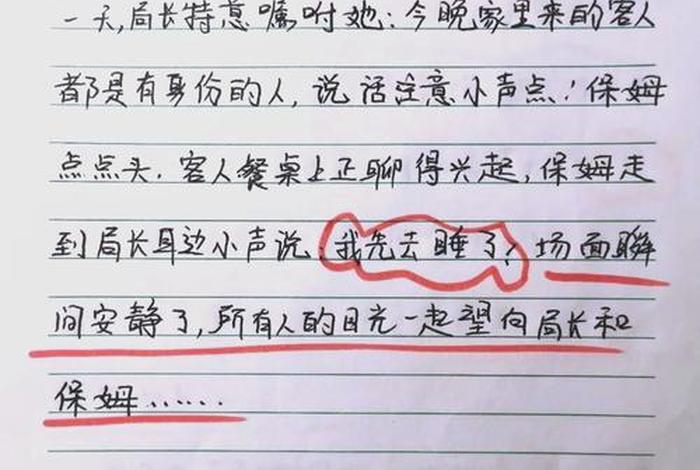 一天,局长特意嘱咐她:今晚家里来的客人
都是有身份的人,说话注意小声点!保姆
点点头.客人餐桌上正聊得兴起,保姆走
到局长耳边小声说:我先去睡了!场面瞬
间安静了,所有人的目光一起望向局长和
保姆......